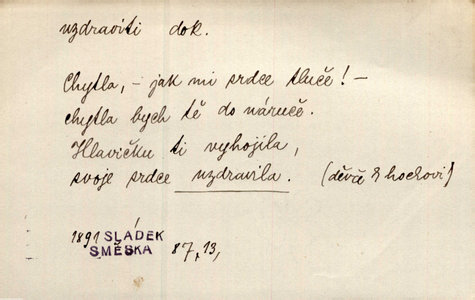 uzdraviti dok.
Chytla, – jak mi srdce tluče! –
chytla bych tě do náruče.
Hlavičku ti vyhojila,
svoje srdce uzdravila. (děvč. k hochovi)
1891 SLÁDEK
SMĚSKA 87, 13,